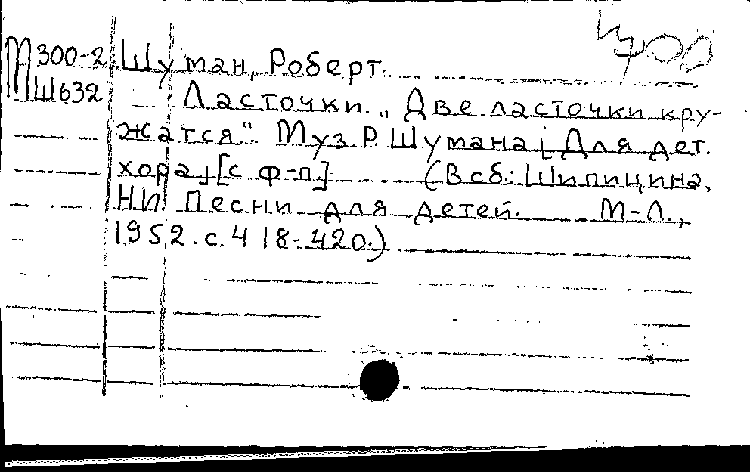 М300-2 Шуман, Роберт.
Ш632 Ласточки. „Две ласточки кру-
жатся". Муз Р Шумана [Для дет.
хора] [с ф-п.] (В сб.: Шипицина,
НИ Песни для детей. М-Л.,
1952. с. 418-420.)